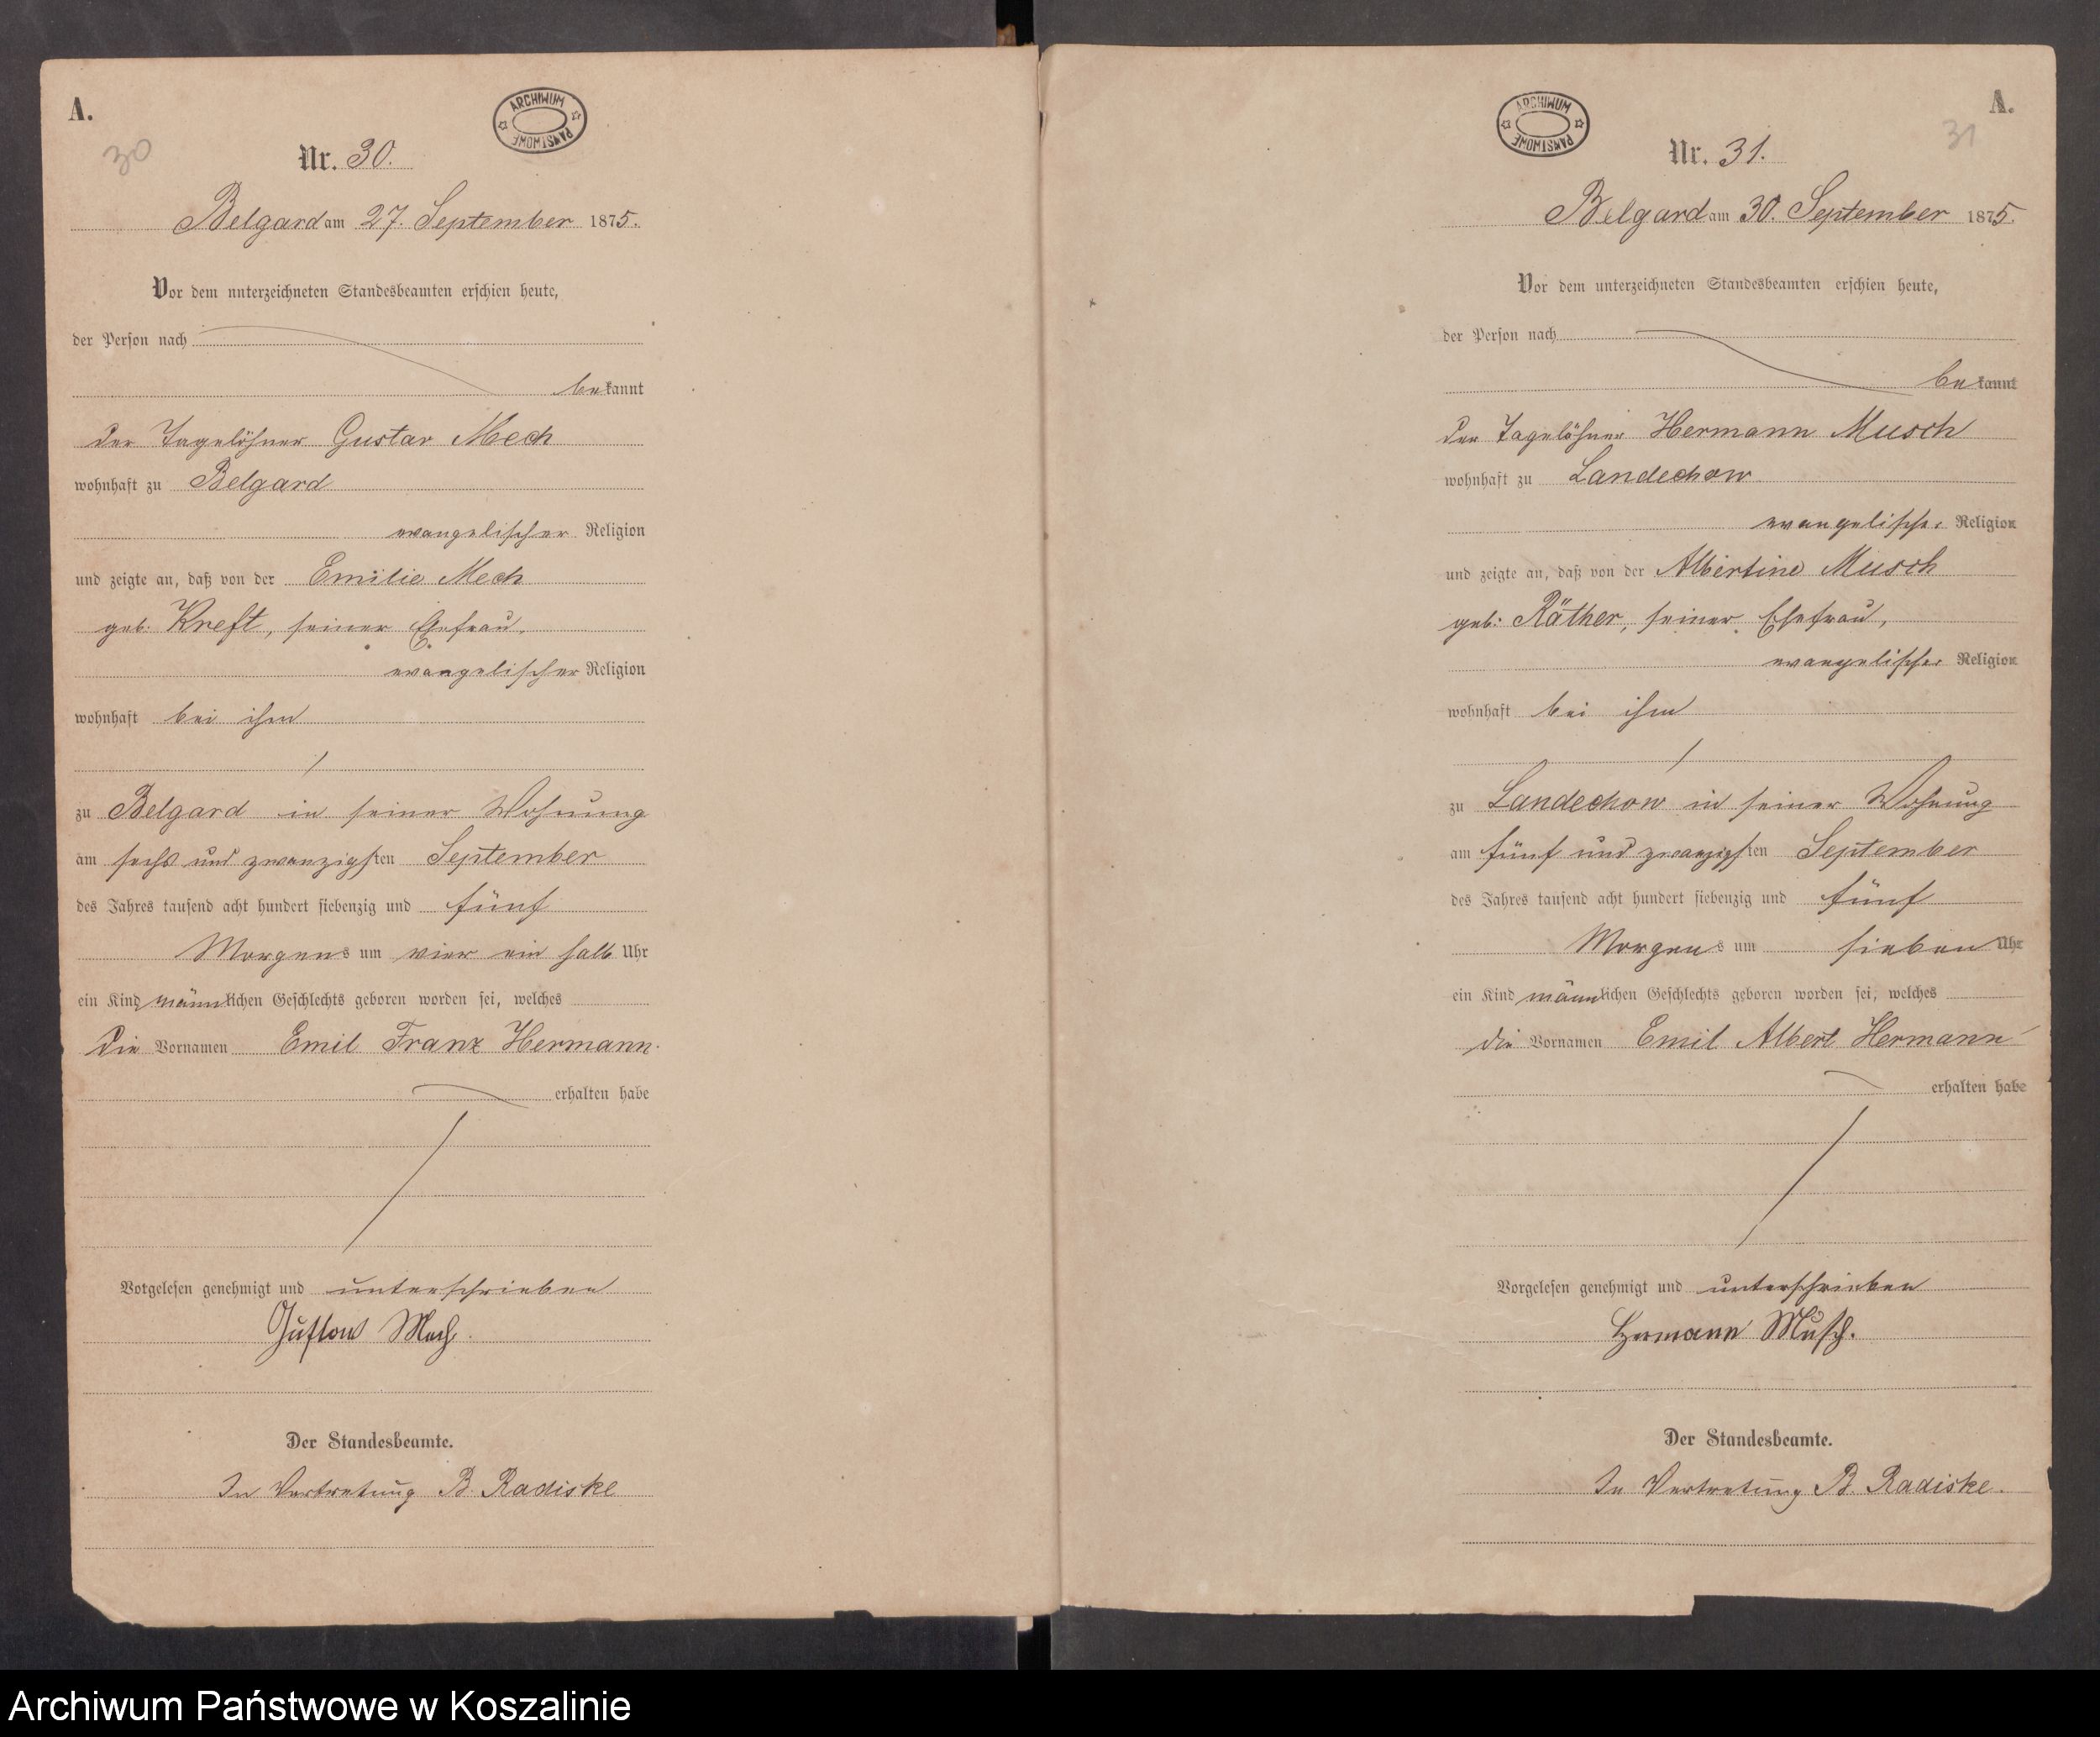 A.
30
ARCHIWUM PAŃSTWOWE
Nr. 30.
Belgard am 27. September 1875.
Vor dem unterzeichneten Standesbeamten erschien heute,
der Person nach
bekannt
der Tagelöhner Gustav Mech
wohnhaft zu Belgard
evangelischer Religion
und zeigte an, daß von der Emilie Mech
geb. Kreft, seiner Ehefrau,
evangelischer Religion
wohnhaft bei ihm
zu Belgard in seiner Wohnung
am sechs und zwanzigsten September
des Jahres tausend acht hundert siebenzig und fünf
Morgens um vier ein halb Uhr
ein Kind männlichen Geschlechts geboren worden sei, welches
die Vornamen Emil Franz Hermann.
erhalten habe
Vorgelesen genehmigt und unterschrieben
Gustav Mech.
Der Standesbeamte.
In Vertretung B. Radiske
A.
31
ARCHIWUM PAŃSTWOWE
Nr. 31.
Belgard am 30. September 1875.
Vor dem unterzeichneten Standesbeamten erschien heute,
der Person nach
bekannt
der Tagelöhner Hermann Musch
wohnhaft zu Landechow
evangelischer Religion
und zeigte an, daß von der Albertine Musch
geb: Räther, seiner Ehefrau,
evangelischer Religion
wohnhaft bei ihm
zu Landechow in seiner Wohnung
am fünf und zwanzigsten September
des Jahres tausend acht hundert siebenzig und fünf
Morgens um sieben Uhr
ein Kind männlichen Geschlechts geboren worden sei, welches
die Vornamen Emil Albert Hermann
erhalten habe
Vorgelesen genehmigt und unterschrieben
Hermann Musch.
Der Standesbeamte.
In Vertretung B. Radiske.
Archiwum Państwowe w Koszalinie